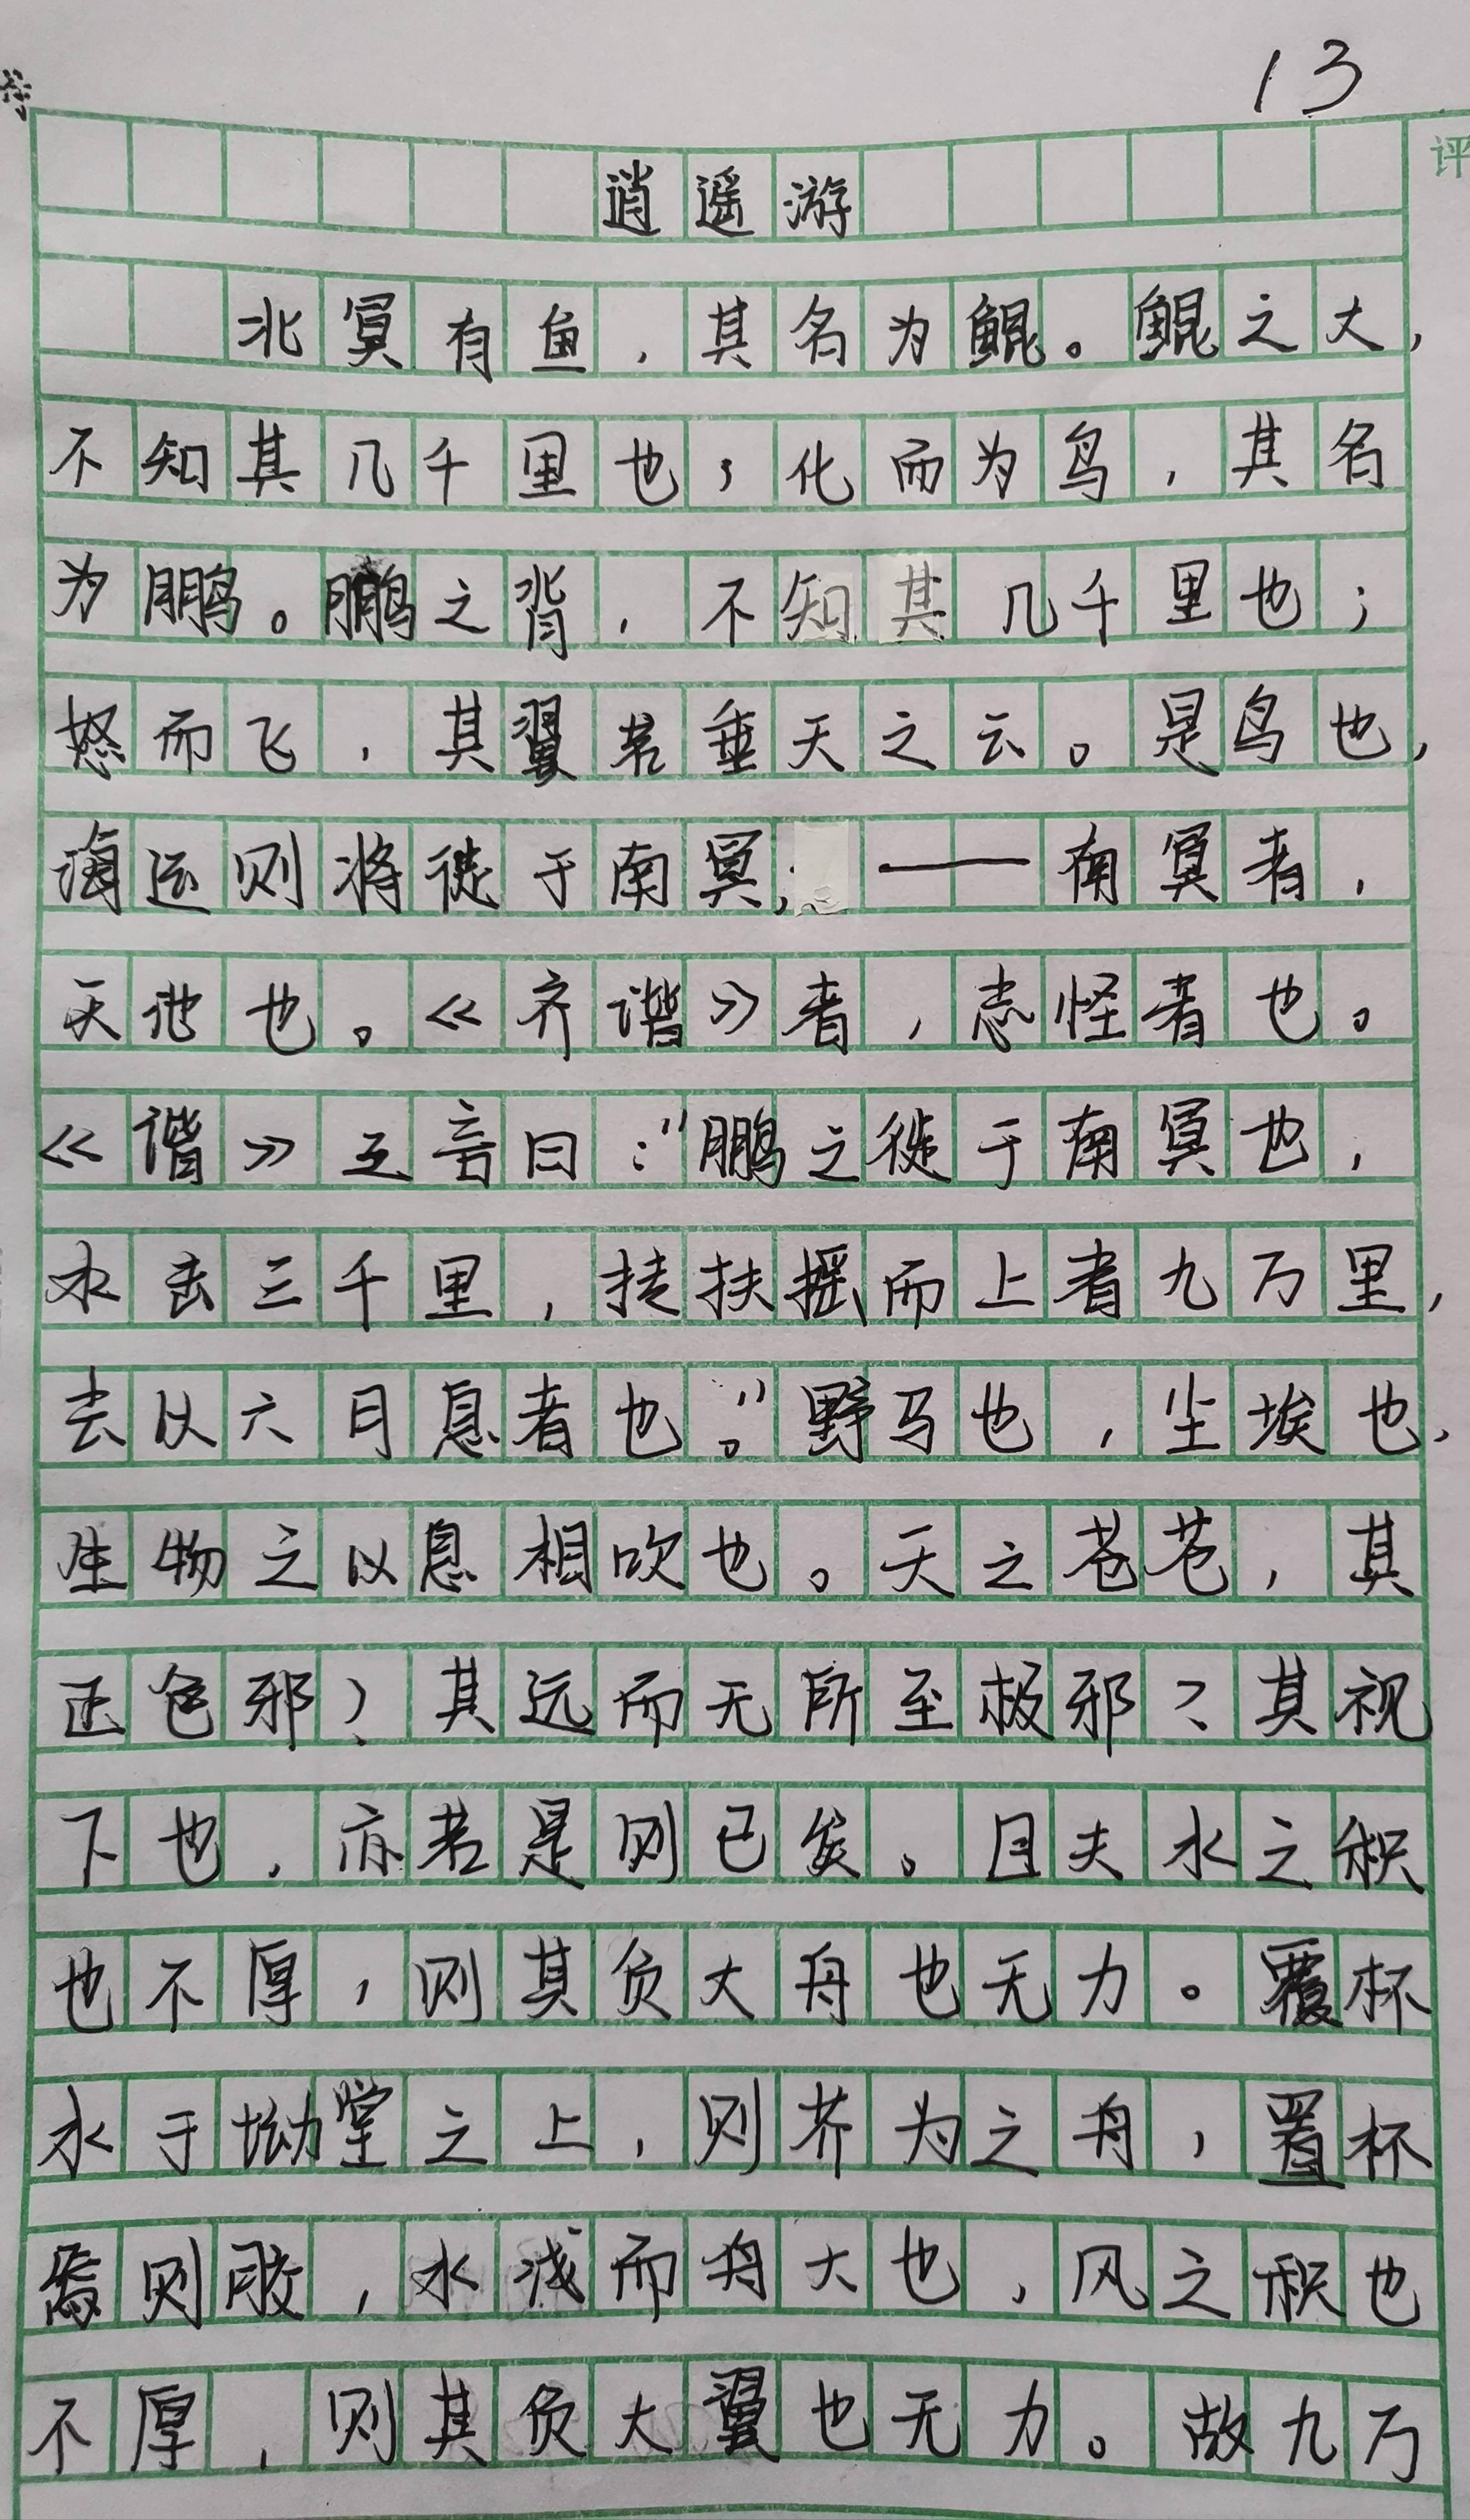 13
评
逍遥游
北冥有鱼，其名为鲲。鲲之大，
不知其几千里也，化而为鸟，其名
为鹏。鹏之背，不知其几千里也；
怒而飞，其翼若垂天之云。是鸟也，
海运则将徙于南冥，——南冥者，
天池也。《齐谐》者，志怪者也。
《谐》之言曰："鹏之徙于南冥也，
水击三千里，抟扶摇而上者九万里，
去以六月息者也。"野马也，尘埃也，
生物之以息相吹也。天之苍苍，其
正色邪？其远而无所至极邪？其视
下也，亦若是则已矣。且夫水之积
也不厚，则其负大舟也无力。覆杯
水于坳堂之上，则芥为之舟，置杯
焉则胶，水浅而舟大也，风之积也
不厚，则其负大翼也无力。故九万